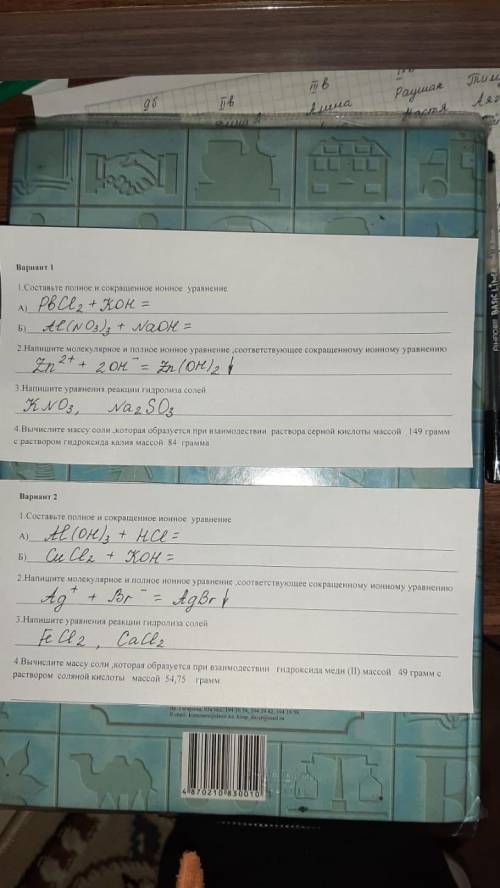 9б
IIв
IIIв
Алина
Раушан
Настя
Вариант 1
1.Составьте полное и сокращенное ионное уравнение
А) PbCl2 + KOH =
Б) Al(NO3)3 + NaOH =
2.Напишите молекулярное и полное ионное уравнение ,соответствующее сокращенному ионному уравнению
Zn²⁺ + 2OH⁻ = Zn(OH)2 ↓
3.Напишите уравнения реакции гидролиза солей
KNO3, Na2SO3
4.Вычислите массу соли ,которая образуется при взаимодествии раствора серной кислоты массой 149 грамм
с раствором гидроксида калия массой 84 грамма
Вариант 2
1.Составьте полное и сокращенное ионное уравнение
А) Al(OH)3 + HCl =
Б) CuCl2 + KOH =
2.Напишите молекулярное и полное ионное уравнение ,соответствующее сокращенному ионному уравнению
Ag⁺ + Br⁻ = AgBr ↓
3.Напишите уравнения реакции гидролиза солей
FeCl2 , CaCl2
4.Вычислите массу соли ,которая образуется при взаимодествии гидроксида меди (II) массой 49 грамм с
раствором соляной кислоты массой 54,75 грамм.
4 870210 830010
BASIC